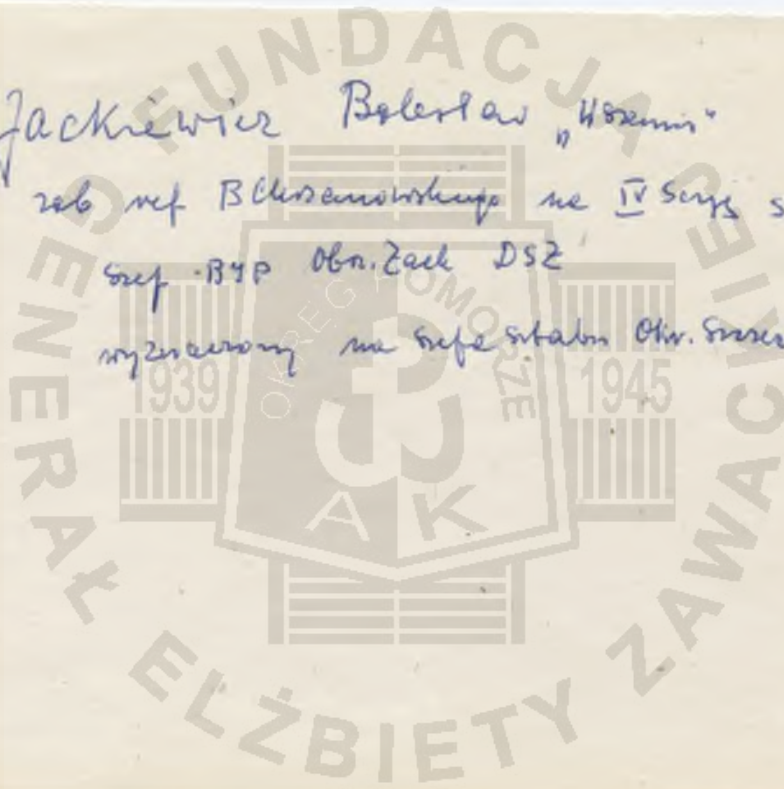 Jackiewicz Bolesław „
zob ref B Chrzanowskiego na IV Sesję s
szef BIP Obsz. Zach DSZ
wyznaczony na szefa sztabu Okr.
FUNDACJA GENERAŁ ELŻBIETY ZAWACKIEJ
OKRĘG POMORZE
1939
1945
AK